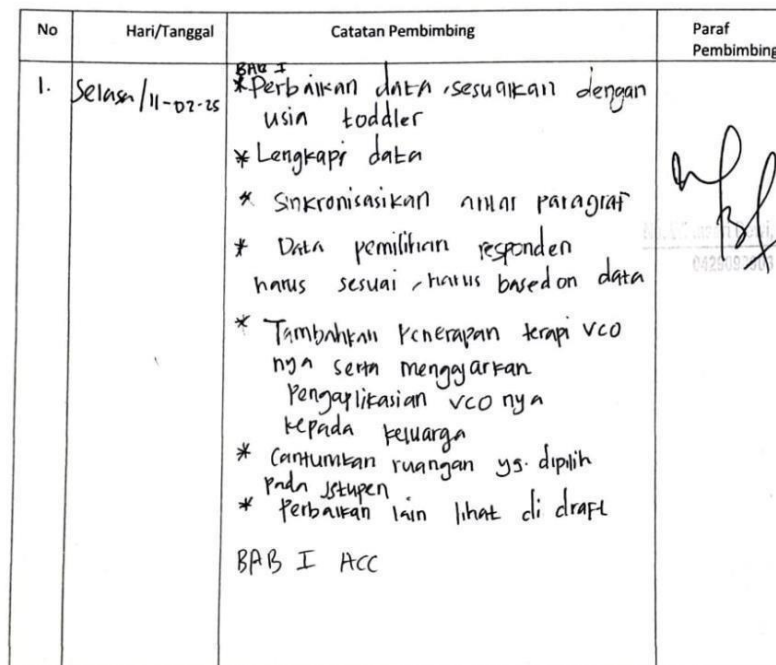 No Hari/Tanggal Catatan Pembimbing Paraf
Pembimbing
BAB I
1. Selasa/11-02-25 * Perbaikan data, sesuaikan dengan
usia toddler
* Lengkapi data
* Sinkronisasikan antar paragraf
* Data pemilihan responden
harus sesuai, harus based on data
* Tambahkan Penerapan terapi VCO
nya serta mengajarkan
Pengaplikasian VCO nya
kepada keluarga
* Cantumkan ruangan yg. dipilih
pada
* Perbaikan lain lihat di draft
BAB I ACC